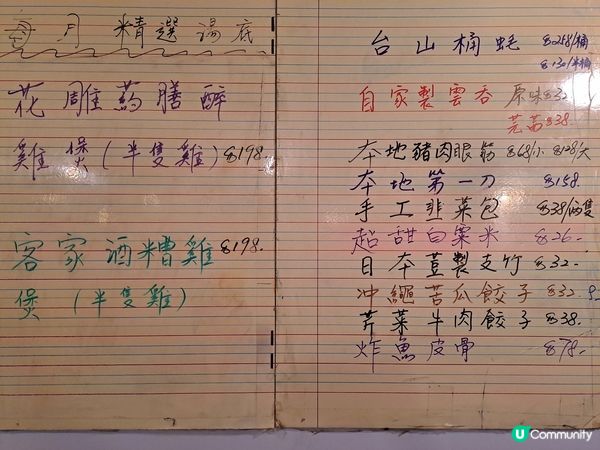 每月精選湯底
花雕药膳醉
雞煲(半隻雞) $198.
客家酒糟雞 $198.
煲(半隻雞)
台山桶蚝 $258/桶
$130/半桶
自家製雲吞 原味$32
芫茜$38
本地豬肉眼筋 $68/小 $128/大
本地第一刀 $158.
手工韭菜包 $38/两隻
超甜白粟米 $26.
日本荳製支竹 $32.
冲繩苦瓜餃子 $32.
芹菜牛肉餃子 $38.
炸魚皮骨 $78.
U Community